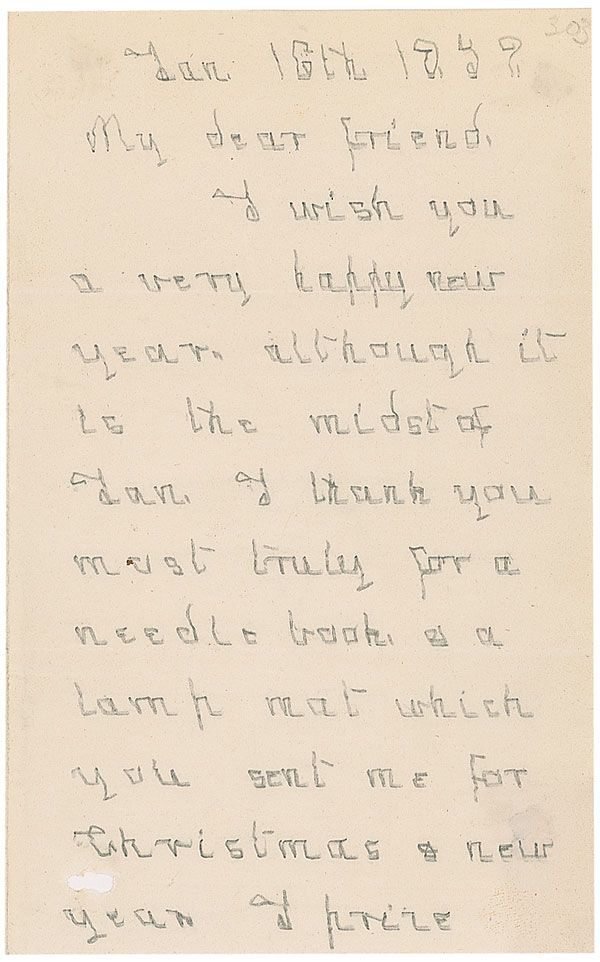 Jan. 16th
My dear friend.
I wish you
a very happy new
year. although it
is the midst of
Jan. I thank you
most truly for a
needle book. & a
lamp mat which
you sent me for
Christmas & new
year. I prize